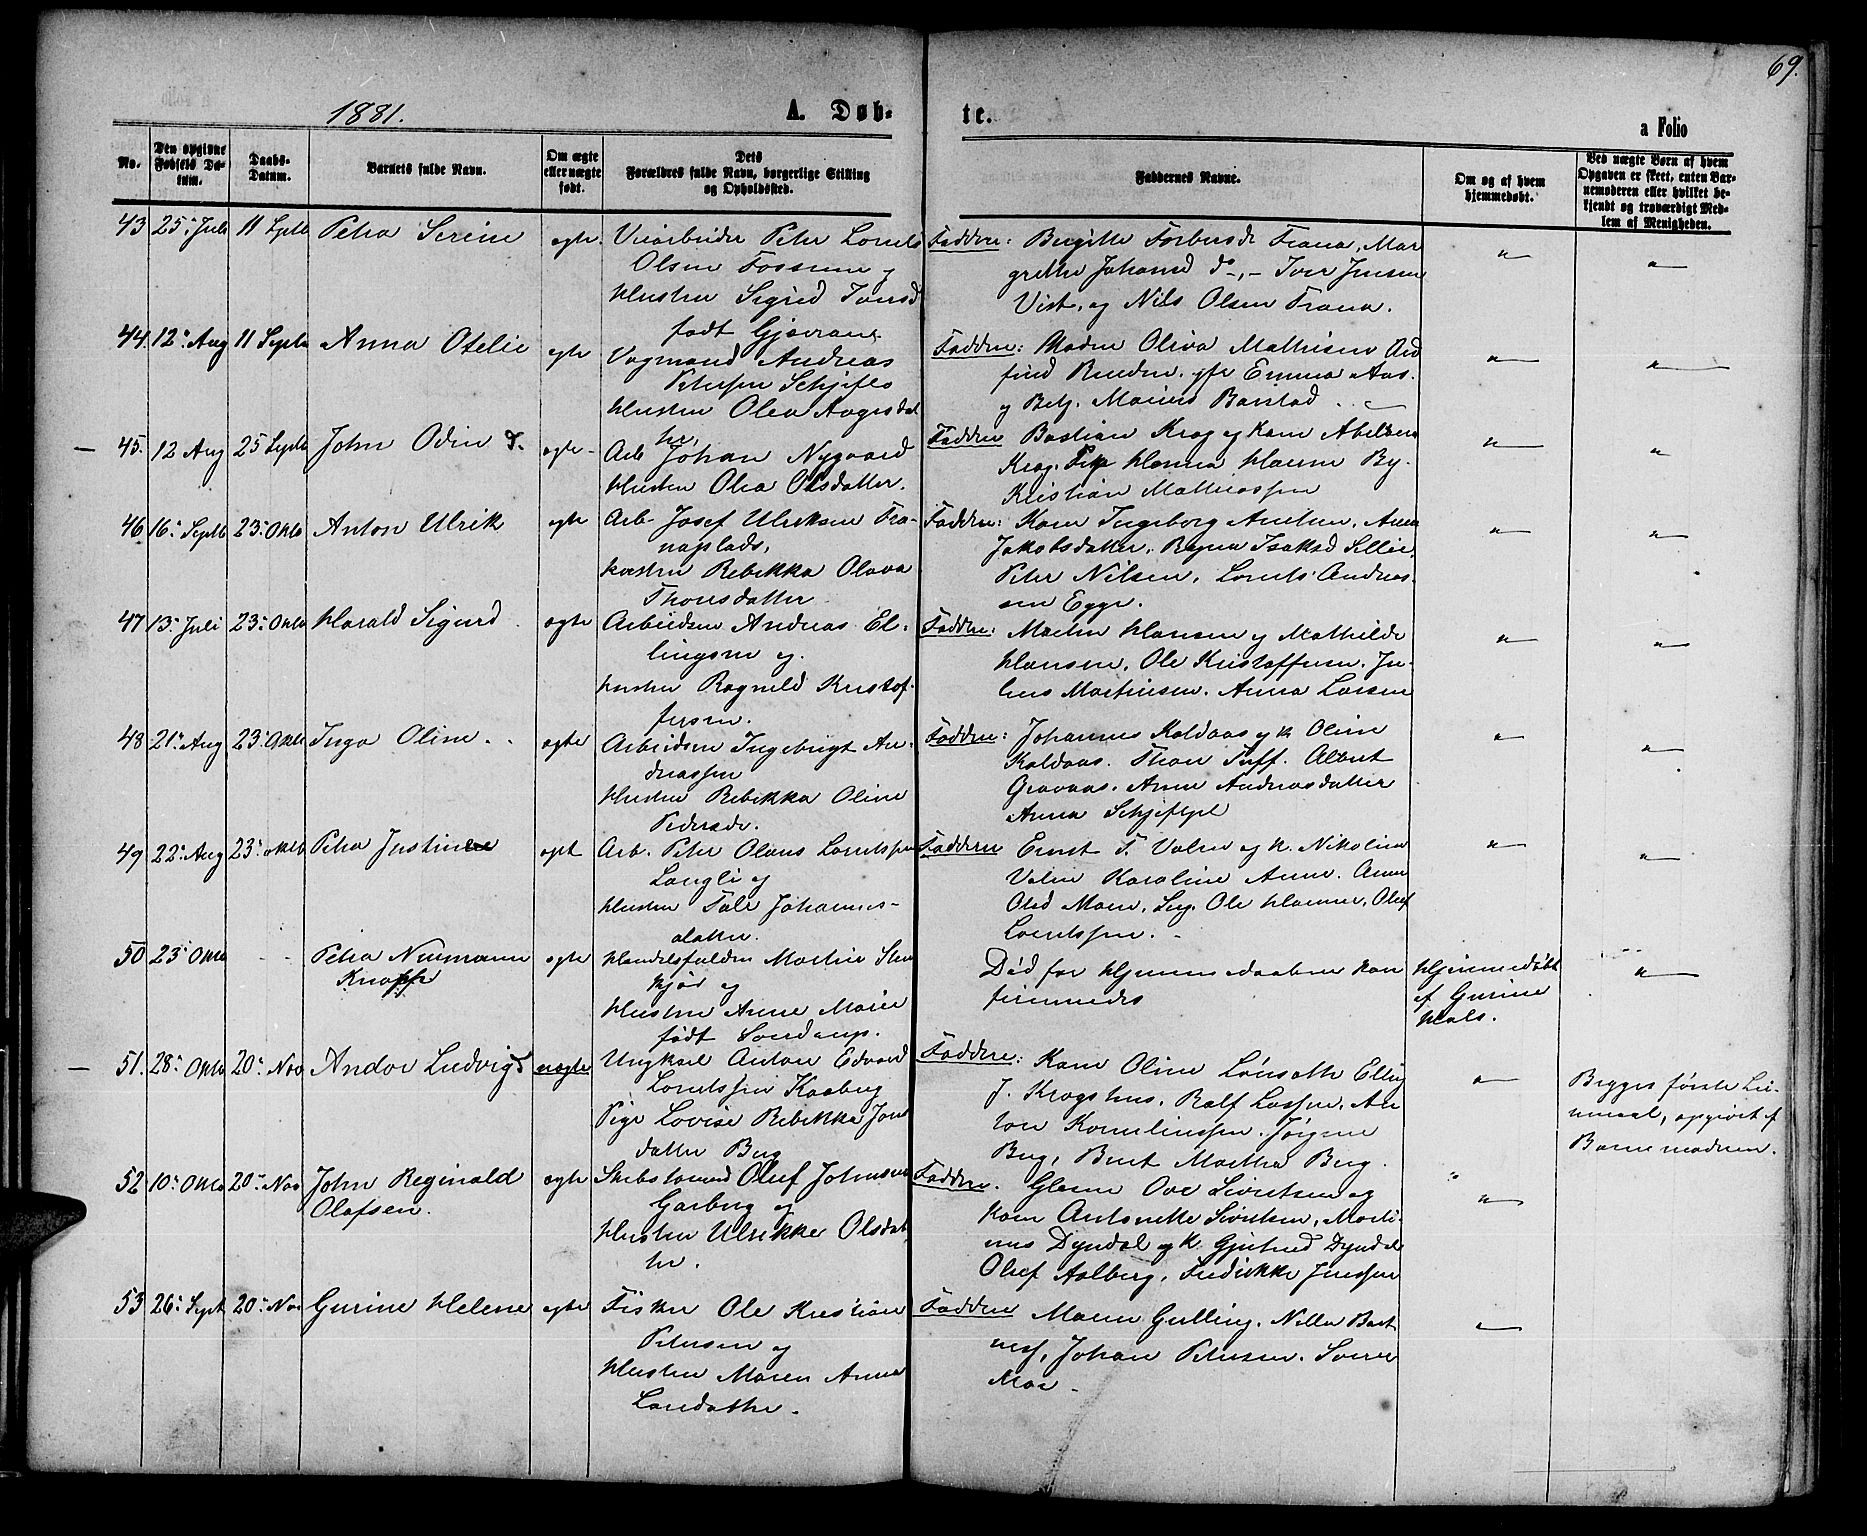 69.
1881.
A. Døb-
te.
a Folio
No.
Den opgivne Fødsels Datum.
Daabs-Datum.
Barnets fulde Navn.
Om ægte eller uægte født.
Dets Forældres fulde Navn, borgerlige Stilling og Opholdssted.
Faddernes Navne.
Om og af hvem hjemmedøbt.
Ved uægte Børn af hvem Opgaven er skeet, enten Barnemoderen eller hvilket bekjendt og troværdigt Medlem af Menigheden.
43 25 Juli 11 Septb Petra Serine egte
Olsen Fossum og
Hustru Sigrid Ionsd
født Gjævran
Faddere: Birgitte Torbersd Trana, Mar
grethe Johansd do -,- Iver Jensen
Vist, og Nils Olsen Trana.
44. 12 Aug 11 Septb Anna Otelie egte
Vogmand Andreas
Petersen Schjeflo
Hustru Olea Aagesdat
ter
Faddere: Maden Oliva Mathisen
og Betj. Marius Barstad
45. 12 Aug 25 Septb John Odin egte
Arb Johan Nygaard
Hustru Olea Olsdatter.
Faddere Bastian Krog og Kone Abeltone
Krog. Hanna By.
Kristian Mathiassen
46 16 Septb 23 Oktb Anton Ulrik egte
Arb. Josef Ulriksen Tra-
naplads,
Hustru Rebekka Olava
Thonsdatter
Faddere: Kone Ingeborg Anna
Jakobsdatter, Isaksd
Peter Nilsen, Lorents Andreas
sen Egge.
47 13 Juli 23 Oktb Harald Sigurd egte
Arbeidsm Andreas El-
lingsen og
Hustru Ragnild Kristof-
fersen.
Faddere: Martin Hansen og Mathilde
Hansen, Ole Kristoffersen. Ju-
lius Martinsen. Anna Larsen
48 21 Aug 23 Oktb Inga Oline egte
Arbeidsm Ingebrigt An-
dreassen
Hustru Rebekka Oline
Pedersd.
Faddere: Johannes Kaldaas og K Oline
Kaldaas. Thon Tuff. Albert
Gravaas. Anne Andreasdatter
Anna Schjeflo
49 22 Aug 23 Oktb Petra Justine egt
Arb. Peter Olaus Lorentssen
Langli og
Hustru Johannes-
datter.
Faddere Ernst T. Valen og K. Nikoline
Valen Karoline
Olsd Moen, Ole Oluf
Lorentssen.
50 23 Oktb Petra Neumann
Knoff egte
Handelsfuldm Martin Sten
kjær og
Hustru Anne Marie
født
Død før Hjemmedaaben kon
firmeredes
Hjemmedøbt
af Gurine
Hals.
51. 28 Oktb 20 Nov Andor Ludvig uegte
Ungkarl Anton Edvard
Lorentssen Kaaberg
Pige Lovise Rebekka Jons
datter Berg
Faddere: Kone Oline Elling
J. Krogshus, Rolf Larsen, An
ton Kornelinssen. Jørgine
Berg, Berit Martha Berg.
Begges første Lei-
ermaal, opgivet af
Barnemoderen.
52 10 Oktb 20 Nov John Reginald
Olafsen. egte
Oluf Johnsen
Garberg og
Hustru Ulrikke Olsdat
ter.
Faddere. Ove Sivertsen og
Kone Antonette Sivertsen, Marti-
nus Dyndal og K. Gjertrud Dyndal
Oluf Aalberg, Fredrikke Jenssen
53 26 Sept 20 Nov Gurine Helene egte
Fisker Ole Kristian
Petersen og
Hustru Maren Anna
Larsdatter.
Faddere Maren Gulling. Nella Bart
nes, Johan Petersen. Sverre
Moe.